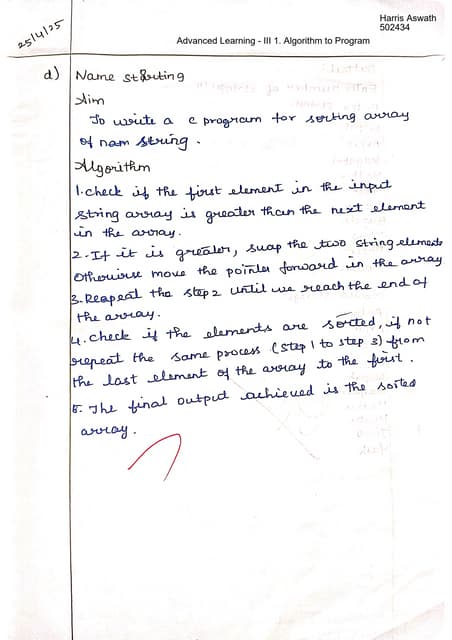 Harris Aswath
502434
25/4/25
Advanced Learning - III 1. Algorithm to Program
d) Name storting
Aim
To write a c program for sorting array
of nam string.
Algorithm
1. check if the first element in the input
string array is greater than the next element
in the array.
2. If it is greater, swap the two string elements
Otherwise move the pointer forward in the array
3. Reapeat the step 2 until we reach the end of
the array.
4. check if the elements are sorted, if not
repeat the same process (step 1 to step 3) from
the last element of the array to the first.
5. The final output achieved is the sorted
array.